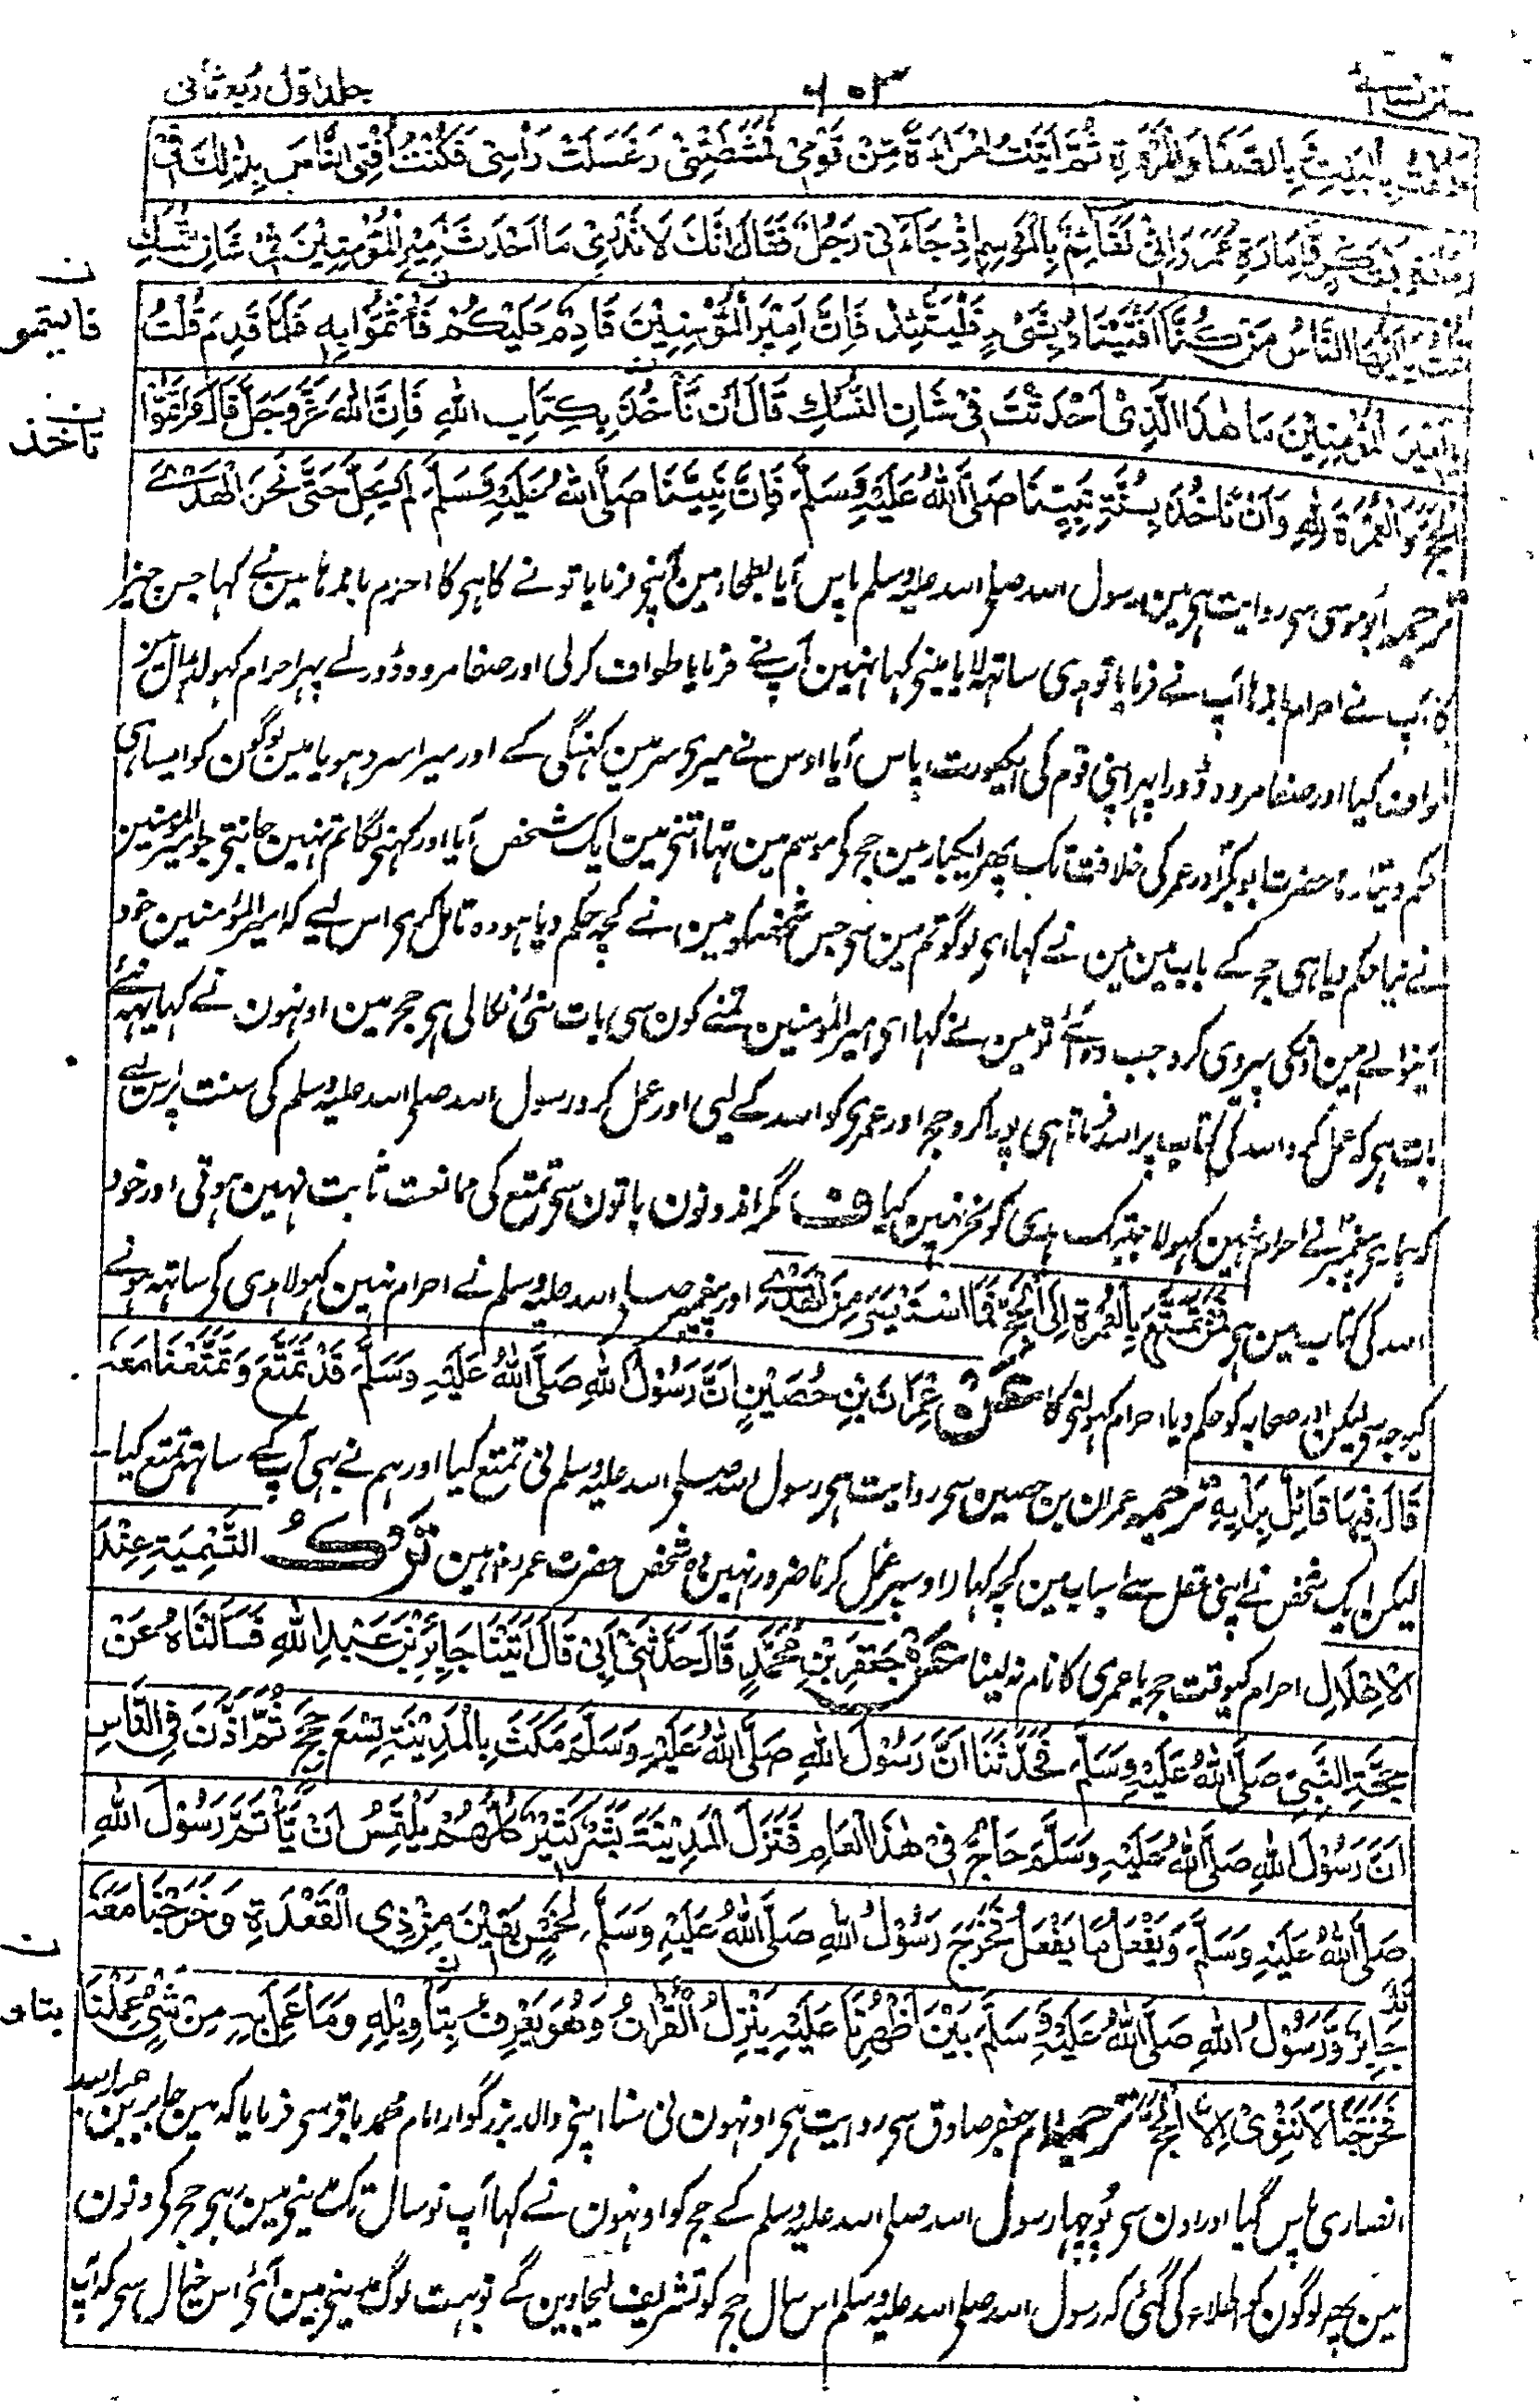 سنن نسائی ۶۰۳ جلد اول ربع ثانی
بِالْبَيْتِ بِالصَّفَا وَالْمَرْوَةِ ثُمَّ أَتَيْتُ امْرَأَةً مِّنْ قَوْمِيْ فَمَشَطَتْنِيْ وَغَسَلَتْ رَأْسِيْ فَكُنْتُ أُفْتِي النَّاسَ بِذٰلِكَ فِيْ
بَكْرٍ وَّإِمَارَةِ عُمَرَ وَإِنِّيْ لَقَائِمٌ بِالْمَوْسِمِ إِذْ جَاءَنِيْ رَجُلٌ فَقَالَ إِنَّكَ لَا تَدْرِيْ مَا أَحْدَثَ أَمِيْرُ الْمُؤْمِنِيْنَ فِيْ شَانِ النُّسُكِ
قُلْتُ يٰأَيُّهَا النَّاسُ مَنْ كُنَّا أَفْتَيْنَاهُ بِشَيْءٍ فَلْيَتَّئِدْ فَإِنَّ أَمِيْرَ الْمُؤْمِنِيْنَ قَادِمٌ عَلَيْكُمْ فَأْتَمُّوْا بِهٖ فَلَمَّا قَدِمَ قُلْتُ
ن
فایتمو
يَا أَمِيْرَ الْمُؤْمِنِيْنَ مَا هٰذَا الَّذِيْ أَحْدَثْتَ فِيْ شَانِ النُّسُكِ قَالَ أَنْ نَّأْخُذَ بِكِتَابِ اللهِ فَإِنَّ اللهَ عَزَّ وَجَلَّ قَالَ وَأَتِمُّوا
ن
تاخذ
الْحَجَّ وَالْعُمْرَةَ لِلّٰهِ وَأَنْ نَّأْخُذَ بِسُنَّةِ نَبِيِّنَا صَلَّى اللهُ عَلَيْهِ وَسَلَّمَ فَإِنَّ نَبِيَّنَا صَلَّى اللهُ عَلَيْهِ وَسَلَّمَ لَمْ يَحِلَّ حَتّٰى نَحَرَ الْهَدْيَ
ترجمہ ابو موسی سی روایت ہی مین رسول اللہ صلی اللہ علیہ وسلم پاس آیا بطحاء مین آپنے فرمایا تو نے کاہیکا احرام باندہا مین نے کہا جس چیز
کا آپ نے احرام باندہا آپ نے فرمایا تو ہدی ساتھ لایا مینی کہا نہین آپ نے فرمایا طواف کرلی اور صفا مروہ دوڑ لے پہر احرام کہول ڈال مین نے
طواف کیا اور صفا مروہ دوڑا پہر اپنی قوم کی ایکعورت پاس آیا اوس نے میری سر مین کنہگی کے اور میرا سر دہویا مین لوگون کو ایسا ہی
حکم دیتا رہا حضرت ابوبکر اور عمر کی خلافت تک پھر ایکبار مین حج کی موسم مین تہا اتنی مین ایک شخص آیا اور کہنی لگا تم نہین جانتی جو امیر المومنین
نے نیا حکم دیا ہی حج کے باب مین مین نے کہا ای لوگو تم مین سی جس شخص کو مین نے کچہ حکم دیا ہو وہ تامل کری اس لیے کہ امیر المومنین خود
آنیوالے مین اونکی پیروی کرو جب وہ آئے تو مین نے کہا ای امیر المومنین تمنے کون سی بات نئی نکالی ہی حج مین اونہون نے کہا یہہ نئے
بات ہی کہ عمل کرو اللہ کی کتاب پر اللہ فرماتا ہی پورا کرو حج اور عمری کو اللہ کے لیی اور عمل کرو رسول اللہ صلی اللہ علیہ وسلم کی سنت پر اس لیے
کہ ہماری پیغمبر نے احرام نہین کہولا جبتک ہدی کو نحر نہین کیا ف مگر ان دونون باتون سی تمتع کی ممانعت ثابت نہین ہوتی اور خود
اللہ کی کتاب مین ہی فَمَنْ تَمَتَّعَ بِالْعُمْرَةِ إِلَى الْحَجِّ فَمَا اسْتَيْسَرَ مِنَ الْهَدْيِ اور پیغمبر صلی اللہ علیہ وسلم نے احرام نہین کہولا ہدی کی ساتھ ہونے
کیوجہ سی لیکن اور صحابہ کو حکم دیا احرام کہولنی کا عَنْ عِمْرَانَ بْنِ حُصَيْنٍ أَنَّ رَسُوْلَ اللهِ صَلَّى اللهُ عَلَيْهِ وَسَلَّمَ قَدْ تَمَتَّعَ وَتَمَتَّعْنَا مَعَهٗ
قَالَ فِيْهَا قَائِلٌ بِرَأْيِهٖ ترجمہ عمران بن حصین سی روایت ہی رسول اللہ صلی اللہ علیہ وسلم نی تمتع کیا اور ہم نے بہی آپ کے ساتہ تمتع کیا۔
لیکن ایک شخص نے اپنی عقل سے اسباب مین کچہ کہا (اوسپر عمل کرنا ضرور نہین وہ شخص حضرت عمر رضہ ہین تَرْكُ التَّسْمِيَةِ عِنْدَ
الْإِهْلَالِ احرام کیوقت حج یا عمری کا نام نہ لینا عَنْ جَعْفَرِ بْنِ مُحَمَّدٍ قَالَ حَدَّثَنِيْ أَبِيْ قَالَ أَتَيْنَا جَابِرَ بْنَ عَبْدِ اللهِ فَسَأَلْنَاهُ عَنْ
حَجَّةِ النَّبِيِّ صَلَّى اللهُ عَلَيْهِ وَسَلَّمَ فَحَدَّثَنَا أَنَّ رَسُوْلَ اللهِ صَلَّى اللهُ عَلَيْهِ وَسَلَّمَ مَكَثَ بِالْمَدِيْنَةِ تِسْعَ حِجَجٍ ثُمَّ أُذِّنَ فِي النَّاسِ
أَنَّ رَسُوْلَ اللهِ صَلَّى اللهُ عَلَيْهِ وَسَلَّمَ حَاجٌّ فِيْ هٰذَا الْعَامِ فَنَزَلَ الْمَدِيْنَةَ بَشَرٌ كَثِيْرٌ كُلُّهُمْ يَلْتَمِسُ أَنْ يَّأْتَمَّ رَسُوْلَ اللهِ
صَلَّى اللهُ عَلَيْهِ وَسَلَّمَ وَيَفْعَلُ مَا يَفْعَلُ فَخَرَجَ رَسُوْلُ اللهِ صَلَّى اللهُ عَلَيْهِ وَسَلَّمَ لِخَمْسٍ بَقِيْنَ مِنْ ذِي الْقَعْدَةِ وَخَرَجْنَا مَعَهٗ
جَابِرٌ وَّرَسُوْلُ اللهِ صَلَّى اللهُ عَلَيْهِ وَسَلَّمَ بَيْنَ أَظْهُرِنَا عَلَيْهِ يَنْزِلُ الْقُرْآنُ وَهُوَ يَعْرِفُ بِتَأْوِيْلِهٖ وَمَا عَمِلَ بِهٖ مِنْ شَيْءٍ عَمِلْنَا
ن
فَخَرَجْنَا لَا نَنْوِيْ إِلَّا الْحَجَّ ترجمہ امام جعفر صادق سی روایت ہی اونہون نی سنا اپنی والد بزرگوار امام محمد باقر سی فرمایا کہ مین جابر بن عبد اللہ
انصاری پاس گیا اور اون سی پوچہا رسول اللہ صلی اللہ علیہ وسلم کے حج کو اونہون نے کہا آپ نو سال تک مدینی مین رہی حج کی دنون
مین پہر لوگون کو اطلاع کی گئی کہ رسول اللہ صلی اللہ علیہ وسلم اس سال حج کو تشریف لیجاوین گے تو بہت لوگ مدینی مین آئی اس خیال سی کہ آپ